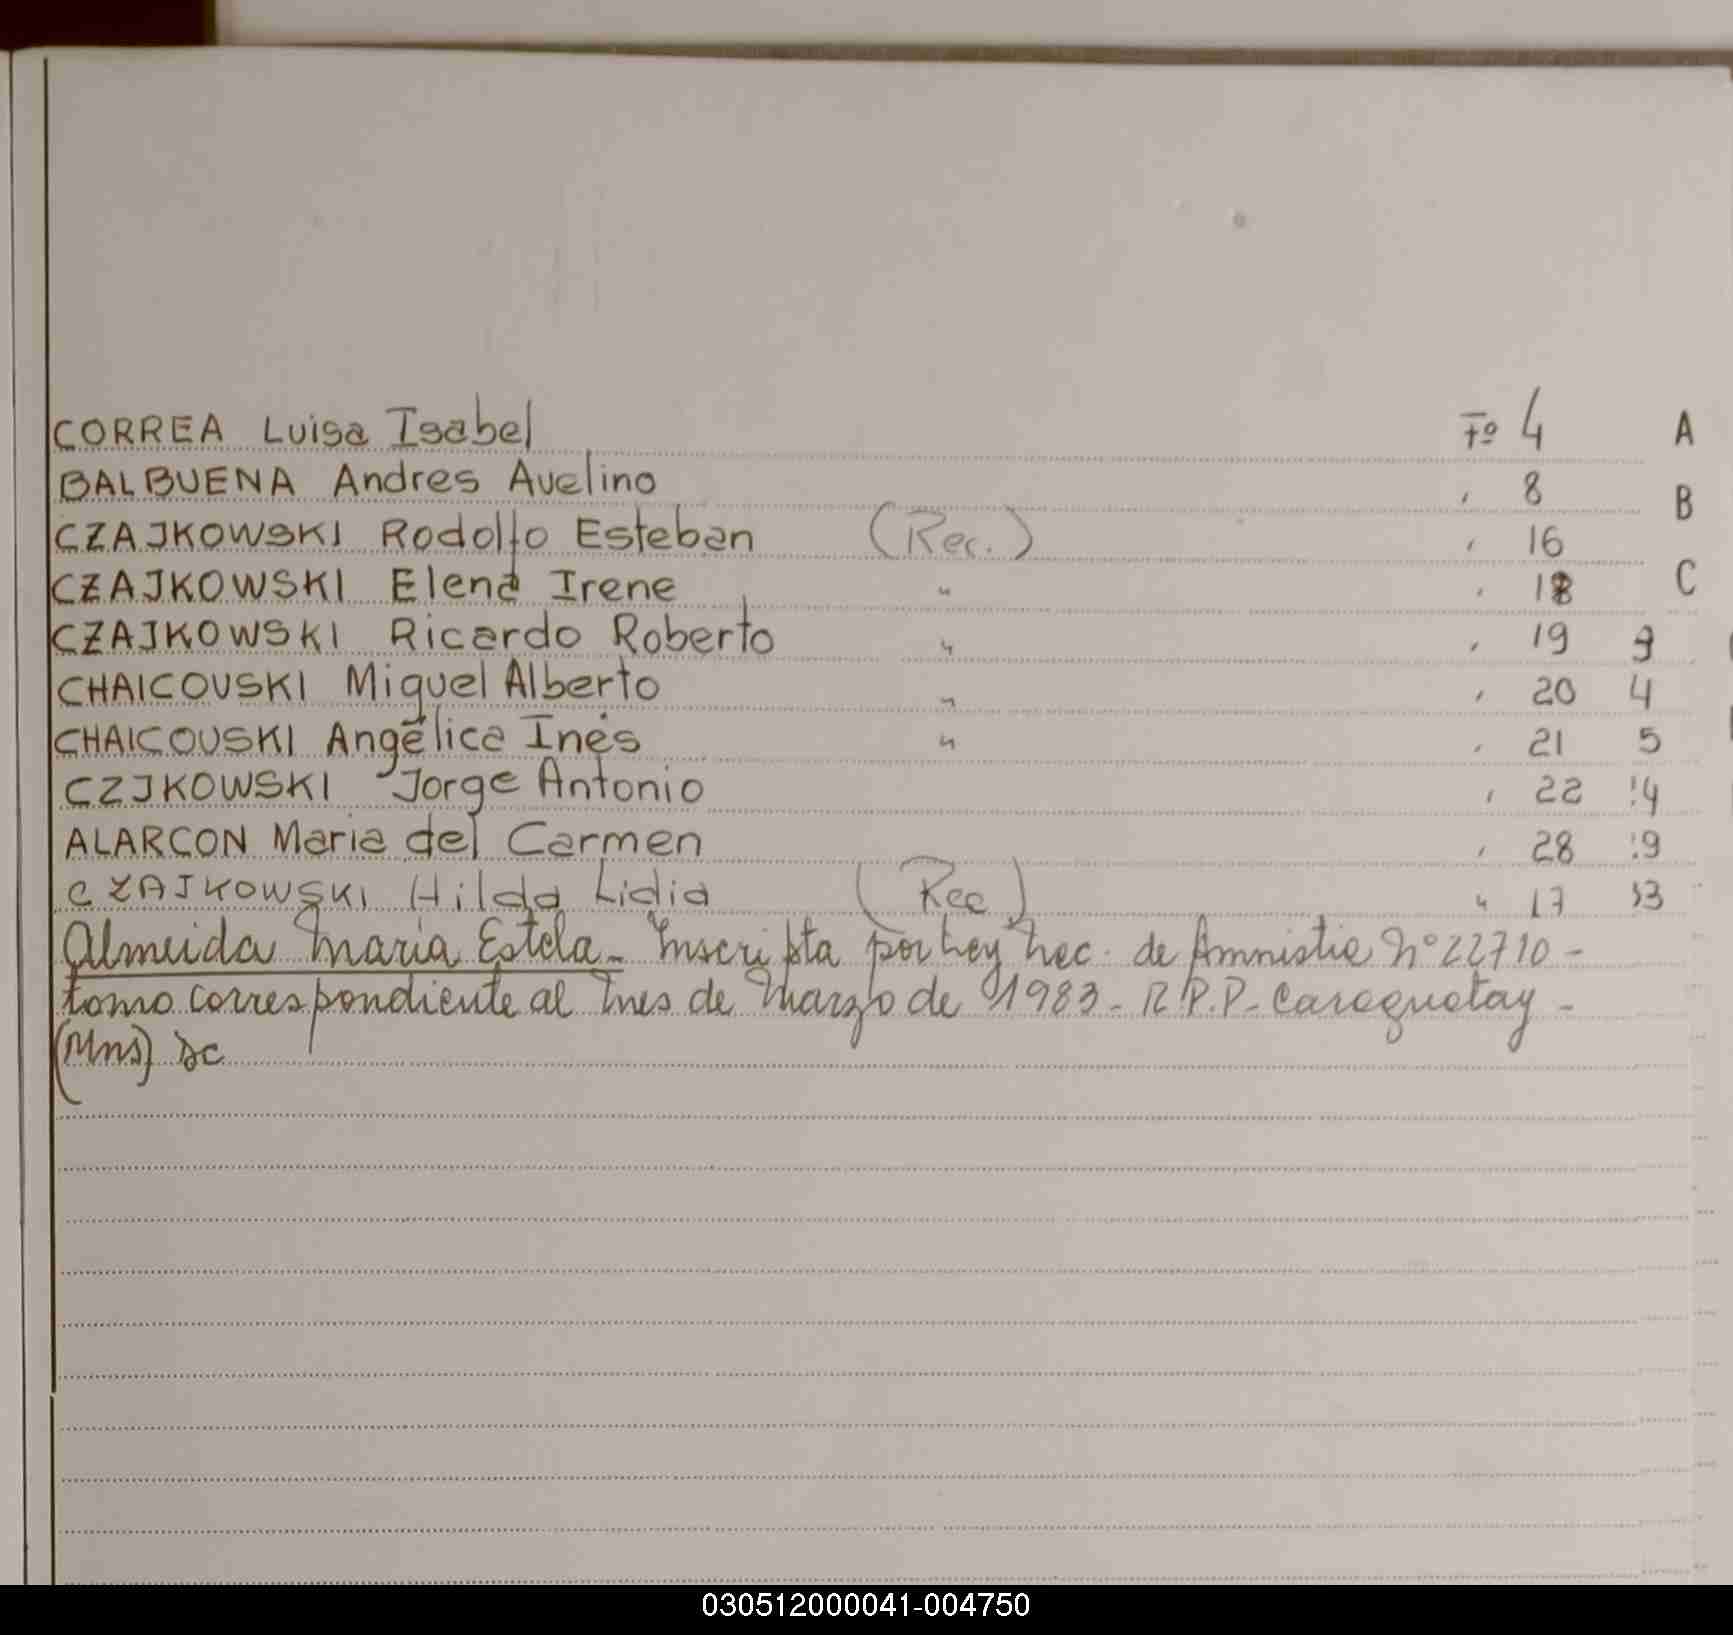 CORREA Luisa Isabel Fº 4 A
BALBUENA Andres Avelino " 8 B
CZAJKOWSKI Rodolfo Esteban (Rec.) " 16
CZAJKOWSKI Elena Irene " " 18 C
CZAJKOWSKI Ricardo Roberto " " 19 9
CHAICOUSKI Miguel Alberto " " 20 4
CHAICOUSKI Angélica Inés " " 21 5
CZJKOWSKI Jorge Antonio " 22 :4
ALARCON Maria del Carmen " 28 :9
CZAJKOWSKI Hilda Lidia (Rec) " 17 33
Almeida Maria Estela - Inscripta por Ley Nac. de Amnistia Nº 22710 -
tomo correspondiente al mes de Marzo de 1983 - R.P.P. Caraguatay -
(Mns) Sc
030512000041-004750